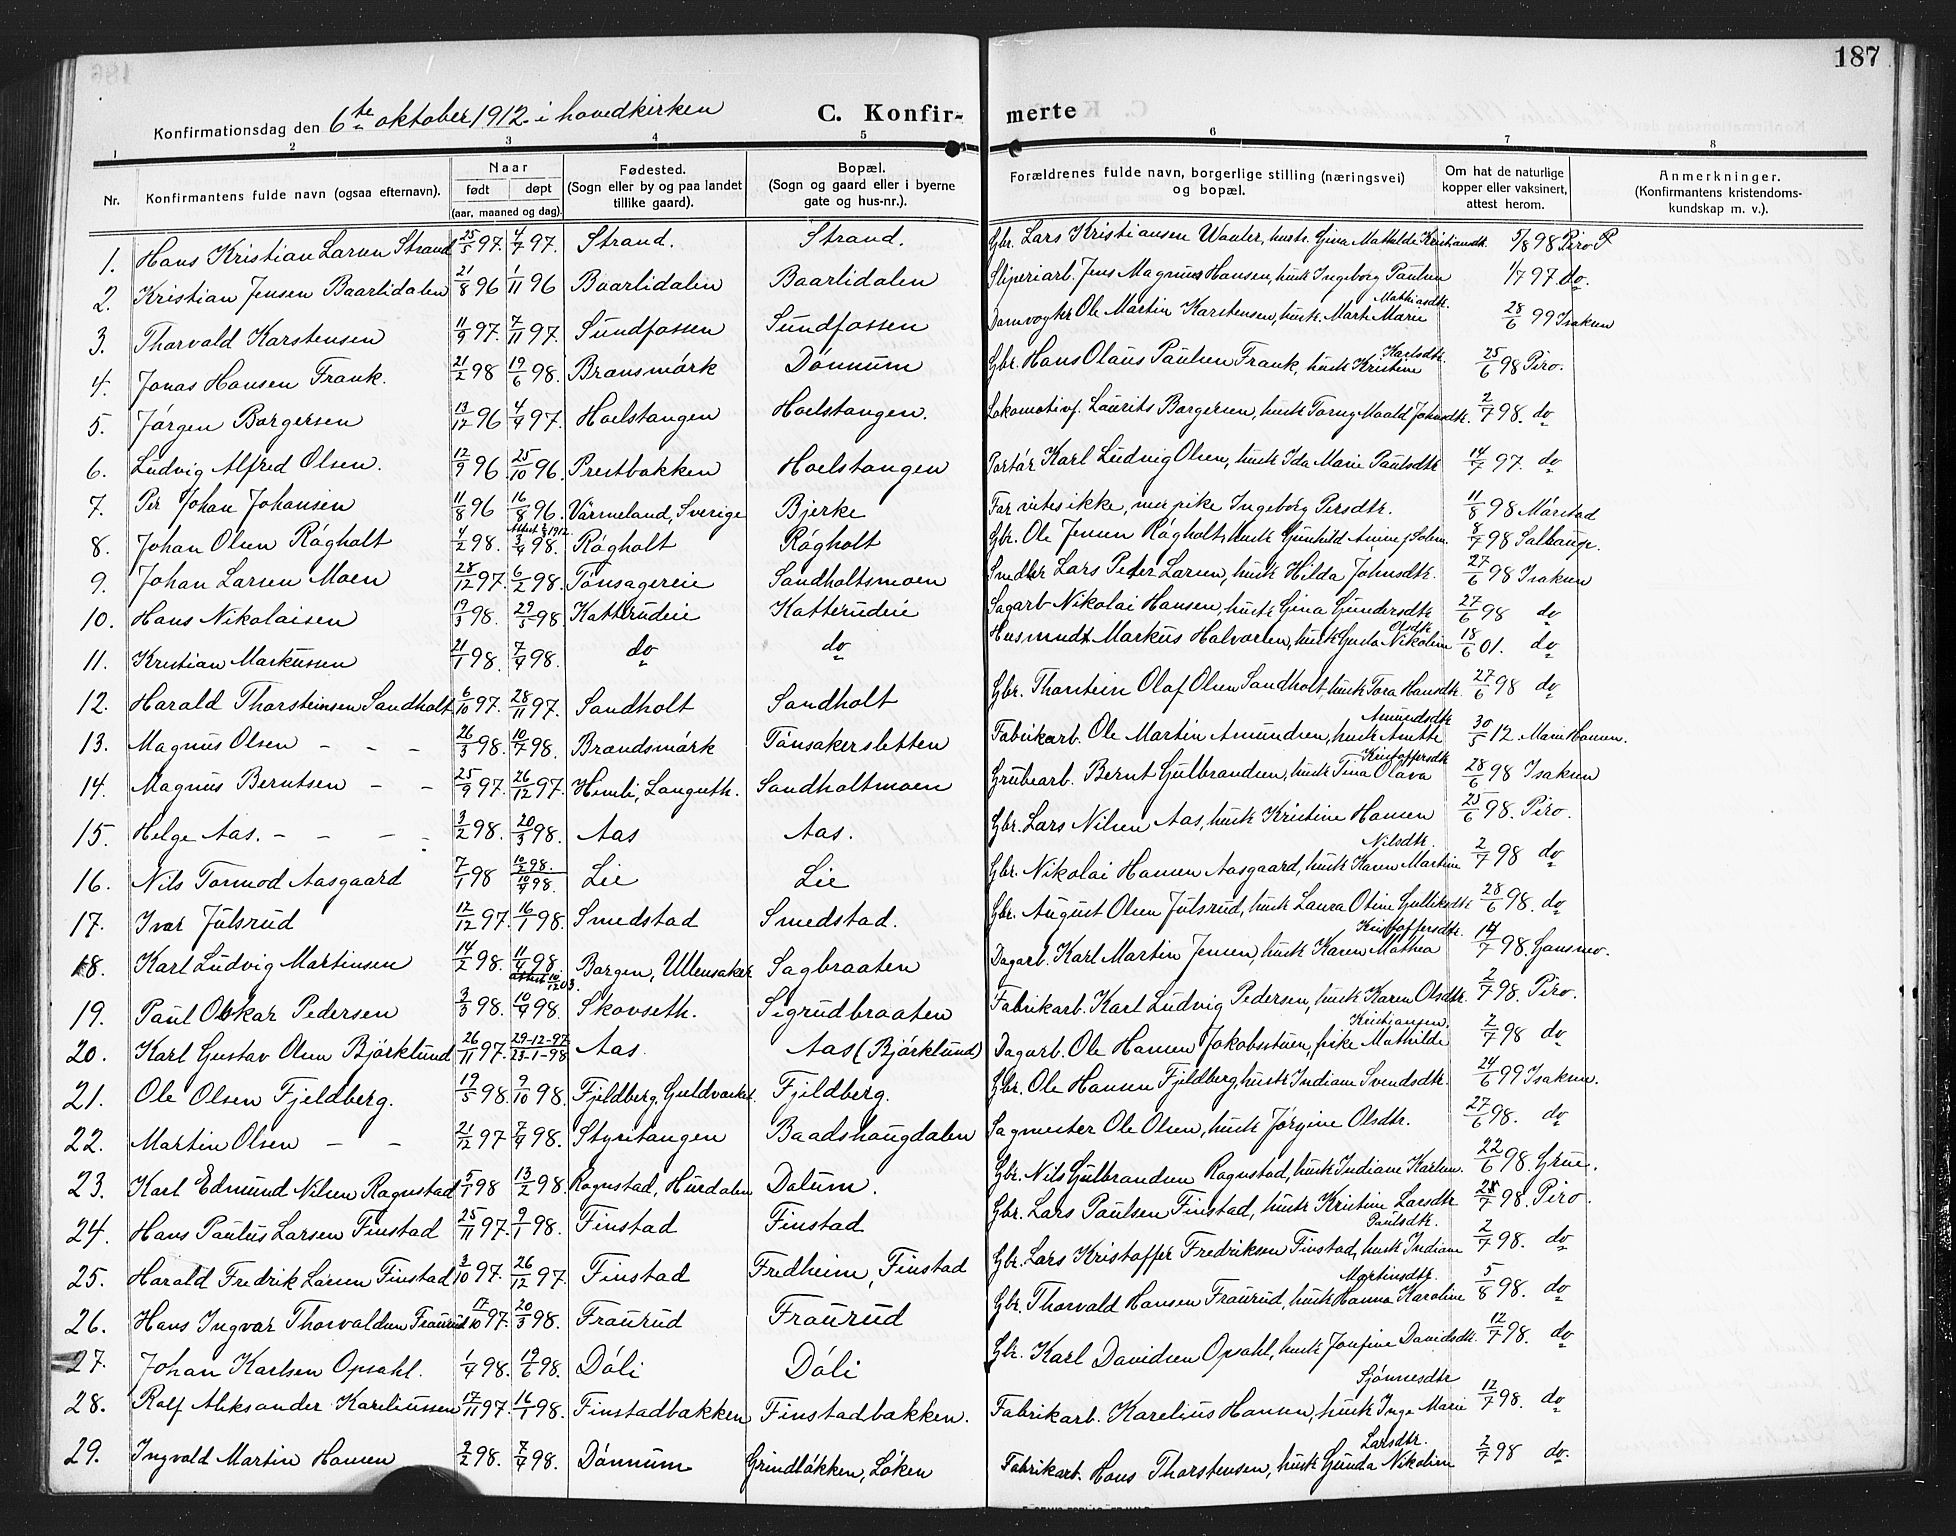 187
Konfirmationsdag den 6te oktober 1912 i hovedkirken
C. Konfir- merte
1 2 3 4 5 6 7 8
Nr. Konfirmantens fulde navn (ogsaa efternavn). Naar født døpt (aar, maaned og dag). Fødested. (Sogn eller by og paa landet tillike gaard). Bopæl. (Sogn og gaard eller i byerne gate og hus-nr.). Forældrenes fulde navn, borgerlige stilling (næringsvei) og bopæl. Om hat de naturlige kopper eller vaksinert, attest herom. Anmerkninger. (Konfirmantens kristendoms- kundskap m. v.).
1. Hans Kristian Larsen Strand 25/5 97. 4/7 97. Strand. Strand. Gbr. Lars Kristiansen Wauler, hustr. Gina Mathilde Kristiansdtr. 5/8 98 Piro
2. Kristian Jensen Baarlidalen 21/8 96 1/11 96 Baarlidalen Baarlidalen Sliperiarb. Jens Magnus Hansen, hustr Ingeborg Paulsen 1/7 97 do.
3. Thorvald Karstensen 11/9 97. 7/11 97. Sundfossen Sundfossen Damvogter Ole Martin Karstensen, hustr. Mart. Marie Mathiasdtr. 28/6 99 Isaksen
4. Jonas Hansen Frank. 21/2 98 19/6 98. Bransmørk Dønnum Gbr. Hans Olaus Paulsen Frank, hustr Kristine Karlsdtr. 25/6 98 Piro.
5. Jørgen Borgersen 13/12 96 4/4 97. Hoelstangen Hoelstangen. Lokomotivf. Laurits Borgersen, hustr Torny Maald Johnsdtr. 2/7 98. do
6. Ludvig Alfred Olsen. 12/9 96 25/10 96. Prestbakken Hoelstangen Portør Karl Ludvig Olsen, hustr Ida Marie Paulsdtr 14/7 97. do
7. Per Johan Johansen 11/8 96 16/8 96. Värmeland, Sverige Bjerke Far vites ikke, mor pike Ingeborg Persdtr. 11/8 98 Mårstad
8. Johan Olsen Røgholt 4/2 98. 3/4 98. Røgholt Røgholt Gbr. Ole Jensen Røgholt, hustr Gunhild Anine Johns. 8/7 98 Salhaug.
9. Johan Larsen Moen 28/12 97. 6/2 98. Tønsagereie Sandholtsmoen Snedker Lars Peder Larsen, hustr Hilda Johnsdtr. 27/6 98 Isaksen
10. Hans Nikolaisen 19/3 98. 29/5 98. Katterudeie Katterudeie Sagarb Nikolai Hansen, hustr Gina Gundersdtr 27/6 98 do
11. Kristian Markussen 21/1 98. 7/4 98. do do Husmand Markus Halvorsen, hustr Gusta Nikoline Olsdtr 18/6 01. do
12. Harald Thorsteinsen Sandholt 6/10 97. 28/11 97. Sandholt Sandholt Gbr. Thorstein Olaf Olsen Sandholt, hustr Tora Hansdtr. 27/6 98 do
13. Magnus Olsen - - - 26/3 98. 10/7 98. Brandsmørk Tønsakersletten Fabrikarb. Ole Martin Amundsen, hustr Anette Amundsdtr 30/5 12 Marie Hansen.
14. Magnus Berntsen - - 25/9 97. 26/12 97. Himli, Langseth. Sandholtmoen Grubearb. Bernt Gulbrandsen, hustr Tina Olava Kristoffersdtr 28/6 98 Isaksen
15. Helge Aas. - - - - 3/2 98. 20/3 98. Aas Aas. Gbr. Lars Nilsen Aas, hustr Kristine Hansen 25/6 98. Piro.
16. Nils Tormod Aasgaard 7/1 98 10/2 98. 10/4 98. Lie Lie Gbr. Nikolai Hansen Aasgaard, hustr Karen Martine Nilsdtr. 2/7 98 do
17. Ivar Julsrud 12/12 97. 16/1 98. Smedstad Smedstad. Gbr. August Olsen Julsrud, hustr Laura Otine Gulliksdtr 28/6 98. do
18. Karl Ludvig Martinsen 14/2 98. 11/4 98. Borgen, Ullensaker Sagbraaten Dagarb. Karl Martin Jensen, hustr Karen Mathea Kristoffersdtr. 14/7 98. Gansmo.
19. Paul Oskar Pedersen 3/3 98. 10/4 98. Skovseth. Sigrudbraaten Fabrikarb. Karl Ludvig Pedersen, hustr Karen Olsdtr. 2/7 98. Piro.
20. Karl Gustav Olsen Bjørklund 26/11 97. 29-12-97 23-1-98 Aas. Aas (Bjørklund) Dagarb. Ole Hansen Jakobsstuen, pike Mathilde Kristiansen. 2/7 98 do
21. Ole Olsen Fjeldberg. 19/5 98. 9/10 98. Fjeldberg, Guldverket. Fjeldberg. Gbr. Ole Hansen Fjeldberg, hustr Indiane Svendsdtr. 24/6 99 Isaksen.
22. Martin Olsen - - 21/12 97 7/4 98. Styritangen Baadshaugdalen Sagmester Ole Olsen, hustr Jørgine Olsdtr. 27/6 98. do
23. Karl Edmund Nilsen Rognstad 5/1 98 13/2 98. Rognstad, Hurdalen Dalum. Gbr. Nils Gulbrandsen Rognstad, hustr Indiane Karlsen. 22/6 98. Grue.
24. Hans Paulus Larsen Finstad 25/11 97. 9/1 98. Finstad Finstad Gbr. Lars Paulsen Finstad, hustr Kristine Larsdtr 25/7 98. Piro.
25. Harald Fredrik Larsen Finstad 3/10 97. 26/12 97. Finstad Fredheim, Finstad Gbr. Lars Kristoffer Fredriksen Finstad, hustr Indiane Paulsdtr. 2/7 98. do
26. Hans Ingvar Thorvaldsen Fraurud 17/10 97. 20/3 98. Fraurud Fraurud Gbr. Thorvald Hansen Fraurud, hustr Hanna Karoline Martinsdtr. 5/8 98. do
27. Johan Karlsen Opsahl. 1/4 98. 19/6 98. Dóli Dóli Gbr. Karl Davidsen Opsahl, hustr Josefine Davidsdtr. 12/7 98. do
28. Rolf Aleksander Kareliussen 17/11 97. 16/1 98. Finstadbakken Finstadbakken. Fabrikarb. Karelius Hansen, hustr Inga Marie Sjønnesdtr 12/7 98. do
29. Ingvald Martin Hansen 2/2 98. 7/4 98. Dønnum Grindløkken, Løken Fabrikarb. Hans Thorstensen, hustr Gunda Nikoline Larsdtr. 2/7 98 do.